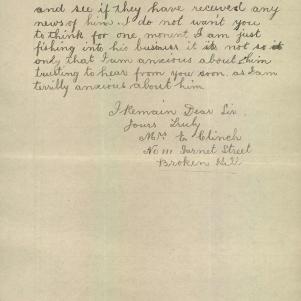 and see if they have received any
news of him. I do not want you
to think for one moment I am just
fishing into his business it is not so it
only that I am anxious about him
trusting to hear from you soon. as I am
terrilly anxious about him
I Remain Dear Sir.
Yours Truly
Mrs E Clinch
No 111 Garnet Street
Broken Hill